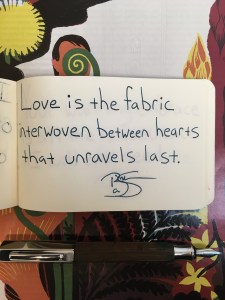 Love is the fabric
interwoven between hearts
that unravels last.